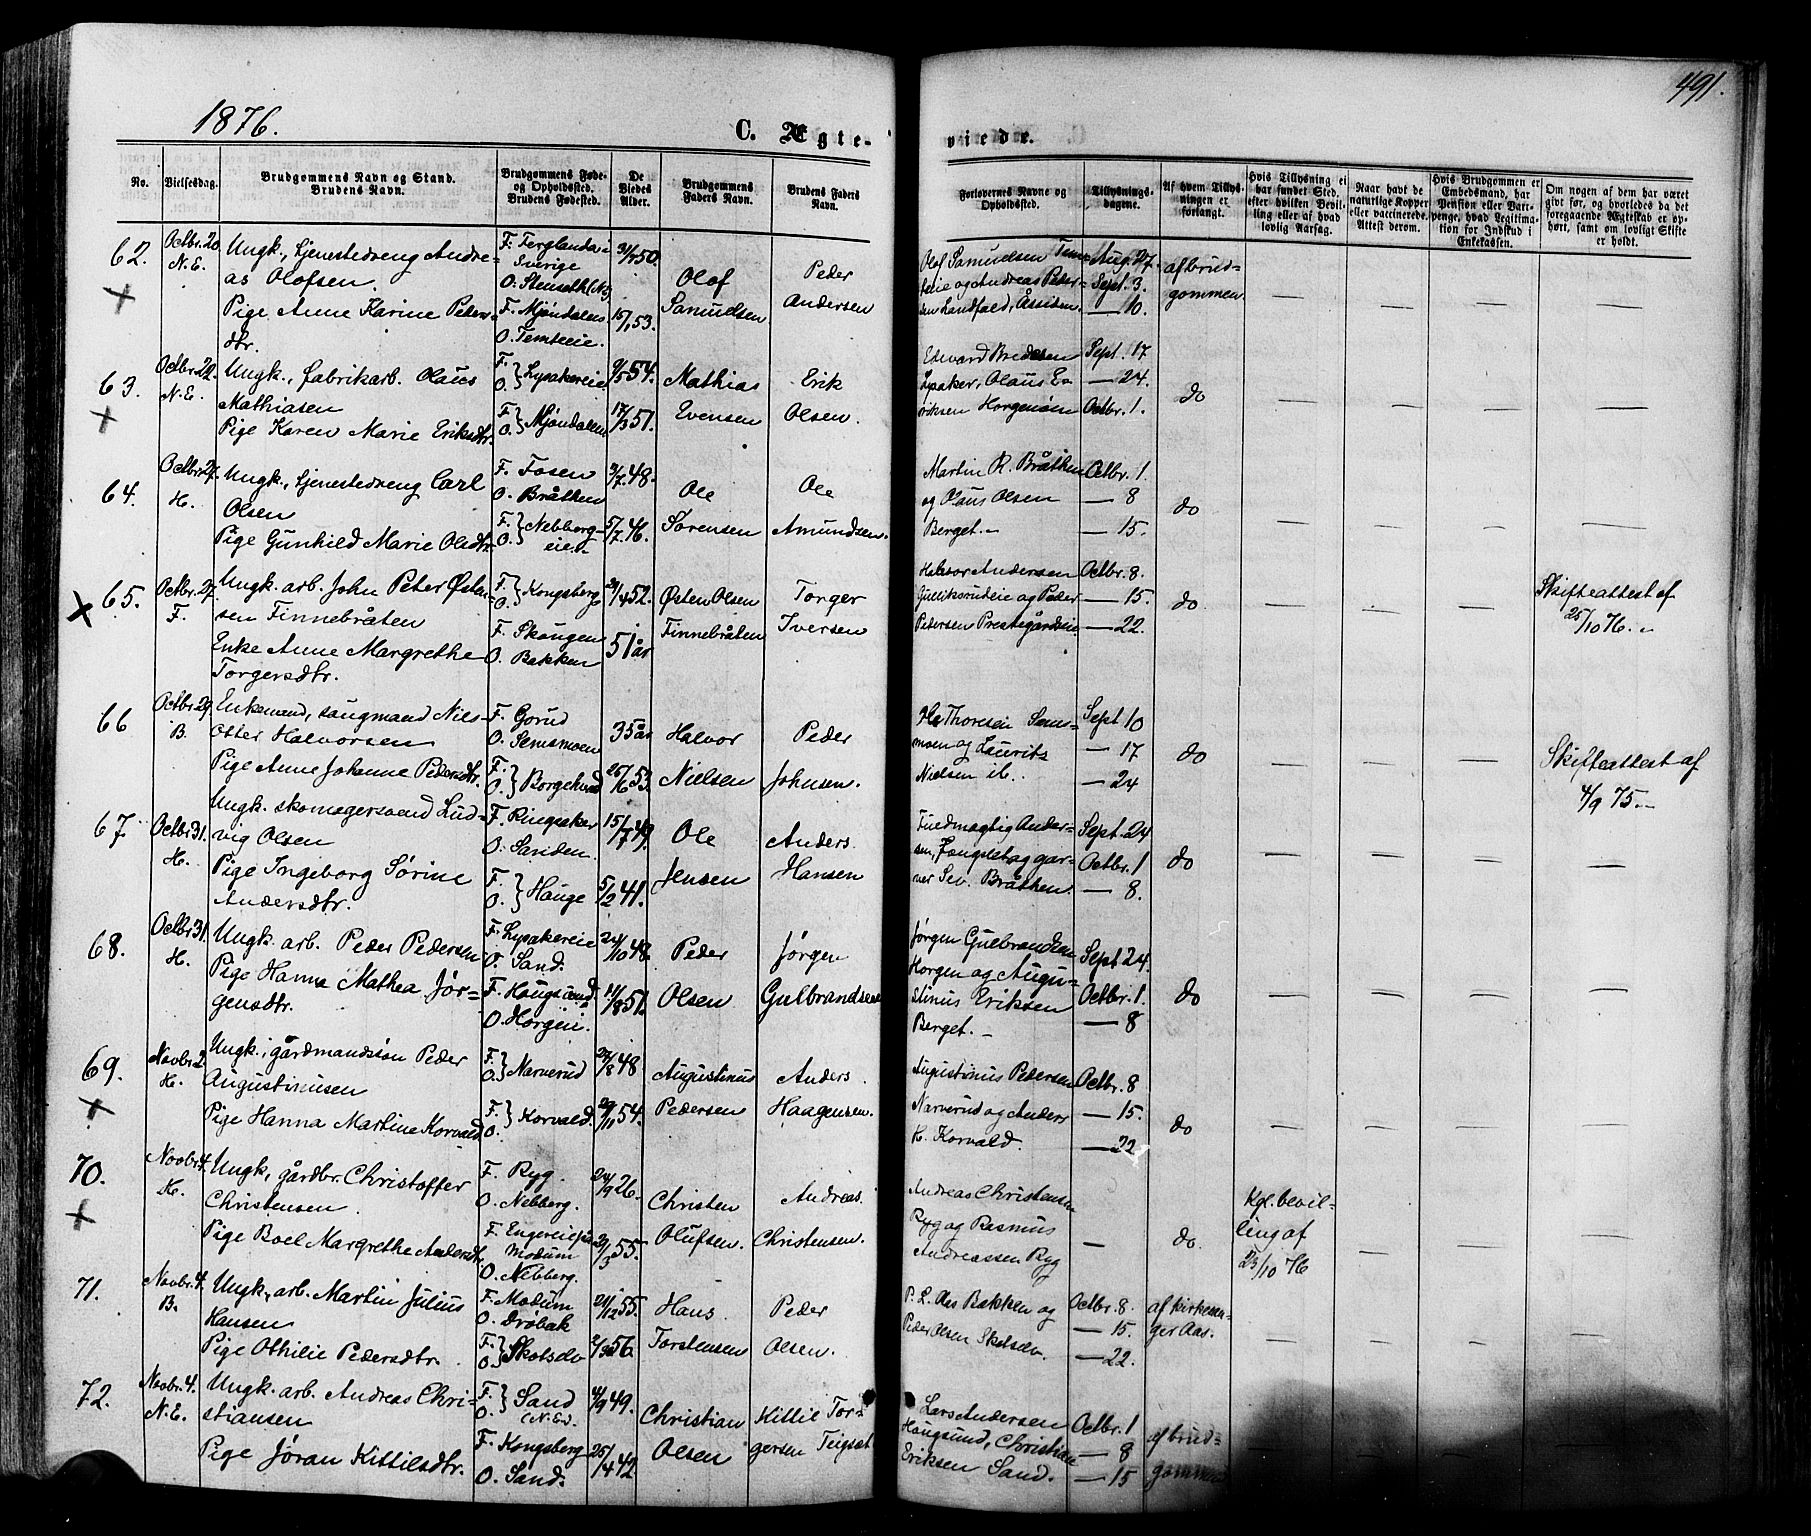 1876.
C. Ægte-
No.
Vielsesdag.
Brudgommens Navn og Stand.
Brudens Navn.
Brudgommens Føde-
og Opholdssted.
Brudens Fødested.
De
Viedes
Alder.
Brudgommens
Faders Navn.
Brudens Faders
Navn.
62. Octbr. 20. N.E.
Ungk., tjenestedreng Andre-
as Olofsen.
Pige Anne Karine Peders-
dtr.
F. Ferglanda i
Sverige
O. Stenseth (N.E.)
F. Mjøndalen
O. Temteeie.
50.
15/1 53.
Olof
Samuelsen
Peder
Andersen
63. Octbr. 22. N.E.
Ungk., fabrikarb. Olaus
Mathiasen
Pige Karen Marie Eriksdtr.
F.
O. } Lysakereie
F.
O. } Mjøndalen
54.
17/3 51.
Mathias
Evensen
Erik
Olsen.
64. Octbr. 27. H.
Ungk., tjenestedreng Carl
Olsen
Pige Gunhild Marie Olsdtr.
F. Fosen
O. Bråthen
F.
O. } Nebberg-
eie.
48.
5/7 46.
Ole
Sørensen
Ole
Amundsen.
65. Octbr. 27. F.
Ungk. arb. John Peter Østen-
sen Finnebråten
Enke Anne Margrethe
Torgersdtr.
F.
O. } Kongsberg
F. Skougen
O. Bakken
52.
51 år
Østen Olsen
Finnebråten
Torger
Iversen
66 Octbr. 29 B.
Enkemand, saugmand Niels
Otter Halvorsen
Pige Anne Johanne Pedersdtr.
F. Gorud
O. Semsmoen
F.
O. } Borgehved
35 år
26/6 53.
Halvor
Nielsen
Peder
Johnsen.
67 Octbr. 31. H.
Ungk. skomagersvend Lud-
vig Olsen
Pige Ingeborg Sørine
Andersdtr.
F. Ringsaker
O. Sanden.
F.
O. } Hauge
15/7 49.
5/2 41.
Ole
Jensen
Anders
Hansen
68. Octbr 31. H.
Ungk. arb. Peder Pedersen
Pige Hanna Mathea Jør-
gensdtr.
F. Lysakereie
O. Sand.
F. Hougsund
O. Horgen.
24/10 48.
11/8 51.
Peder
Olsen
Jørgen
Gulbrandsen
69. Novbr. 2. H.
Ungk., gårdmandssøn Peder
Augustinusen
Pige Hanna Martine Korvald
F.
O. } Narverud
F.
O. } Korvald.
27/8 48
29/11 54.
Augustinus
Pedersen
Anders
Haagensen.
70. Novbr. 4. H.
Ungk., gårdbr. Christoffer
Christensen.
Pige Boel Margrethe Andersdtr.
F. Ryg.
O. Nebberg.
F. Engereie på
Modum
O. Nebberg.
24/9 26.
55.
Christen
Olufsen.
Andreas
Christensen.
71. Novbr. 4. B.
Ungk., arb. Martin Julius
Hansen
Pige Othilie Pedersdtr.
F. Modum
O. Drøbak
F.
O. } Skotselv
21/12 55.
56.
Hans
Torstensen
Peder
Olsen.
72. Novbr. 4. N.E.
Ungk. arb. Andreas Chri-
stiansen
Pige Jøran Kittilsdtr.
F.
O. } Sand
(N.E.)
F. Kongsberg
O. Sand.
4/9 49.
25/4 42
Christian
Olsen
Kittil Tor-
gersen Teigset
491.
viede.
Forlovernes Navne og
Opholdssted.
Tillysnings-
dagene.
Af hvem Tillys-
ningen er
forlangt.
Hvis Tillysning ei
har fundet Sted,
efter hvilken Bevil-
ling eller af hvad
lovlig Aarsag.
Naar havt de
naturlige Kopper
eller vaccinerede.
Attest derom.
Hvis Brudgommen er
Embedsmand, har
Pension eller Vart-
penge, hvad Legitima-
tion for Indskud i
Enkekassen.
Om nogen af dem har været
gift før, og hvorledes da det
foregaaende Ægteskab er op-
hørt, samt om lovligt Skifte
er holdt.
Olof Samuelsen Temte-
eie og Andreas Peder-
sen Landfald, Åssiden.
Aug. 27.
Sept. 3.
— 10.
af brud-
gommen
Edvard Bredesen
Lysaker, Olaus E-
riksen Horgenøien
Sept. 17
— 24.
Octbr. 1.
do
Martin R. Bråthen
og Olaus Olsen
Berget. —
Octbr. 1
— 8
— 15.
do
Halvor Andersen
Gulliksrudeie og Peder
Pedersen Prestegårdseie
Octbr. 8.
— 15.
— 22.
do
Skifteattest af
25/10 76.
Ole Thoresen Sems-
moen og Laurits
Nielsen ib.
Sept 10
— 17
— 24
do
Skifteattest af
4/9 75.
Fuldmægtig Ander-
sen, Fængslet og gar-
ver Sev. Bråthen.
Sept. 24
Octbr. 1
— 8.
do
Jørgen Gulbrandsen
Horgen og Augu-
stinus Eriksen
Berget. —
Sept 24.
Octbr. 1.
— 8
do
Augustinus Pedersen
Narverud og Anders
H. Korvald.
Octbr. 8
— 15.
— 22
do
Andreas Christensen
Ryg og Rasmus
Andreassen Ryg
—
do.
Kgl. bevil-
ling af
23/10 76
P. L. Aas Bakken og
Peder Olsen Skotselv.
Octbr. 8.
— 15.
— 22.
af kirkesan-
ger Aas.
Lars Andersen
Hougsund, Christian
Eriksen Sand.
Octbr. 1
— 8
— 15
af brud-
gommen